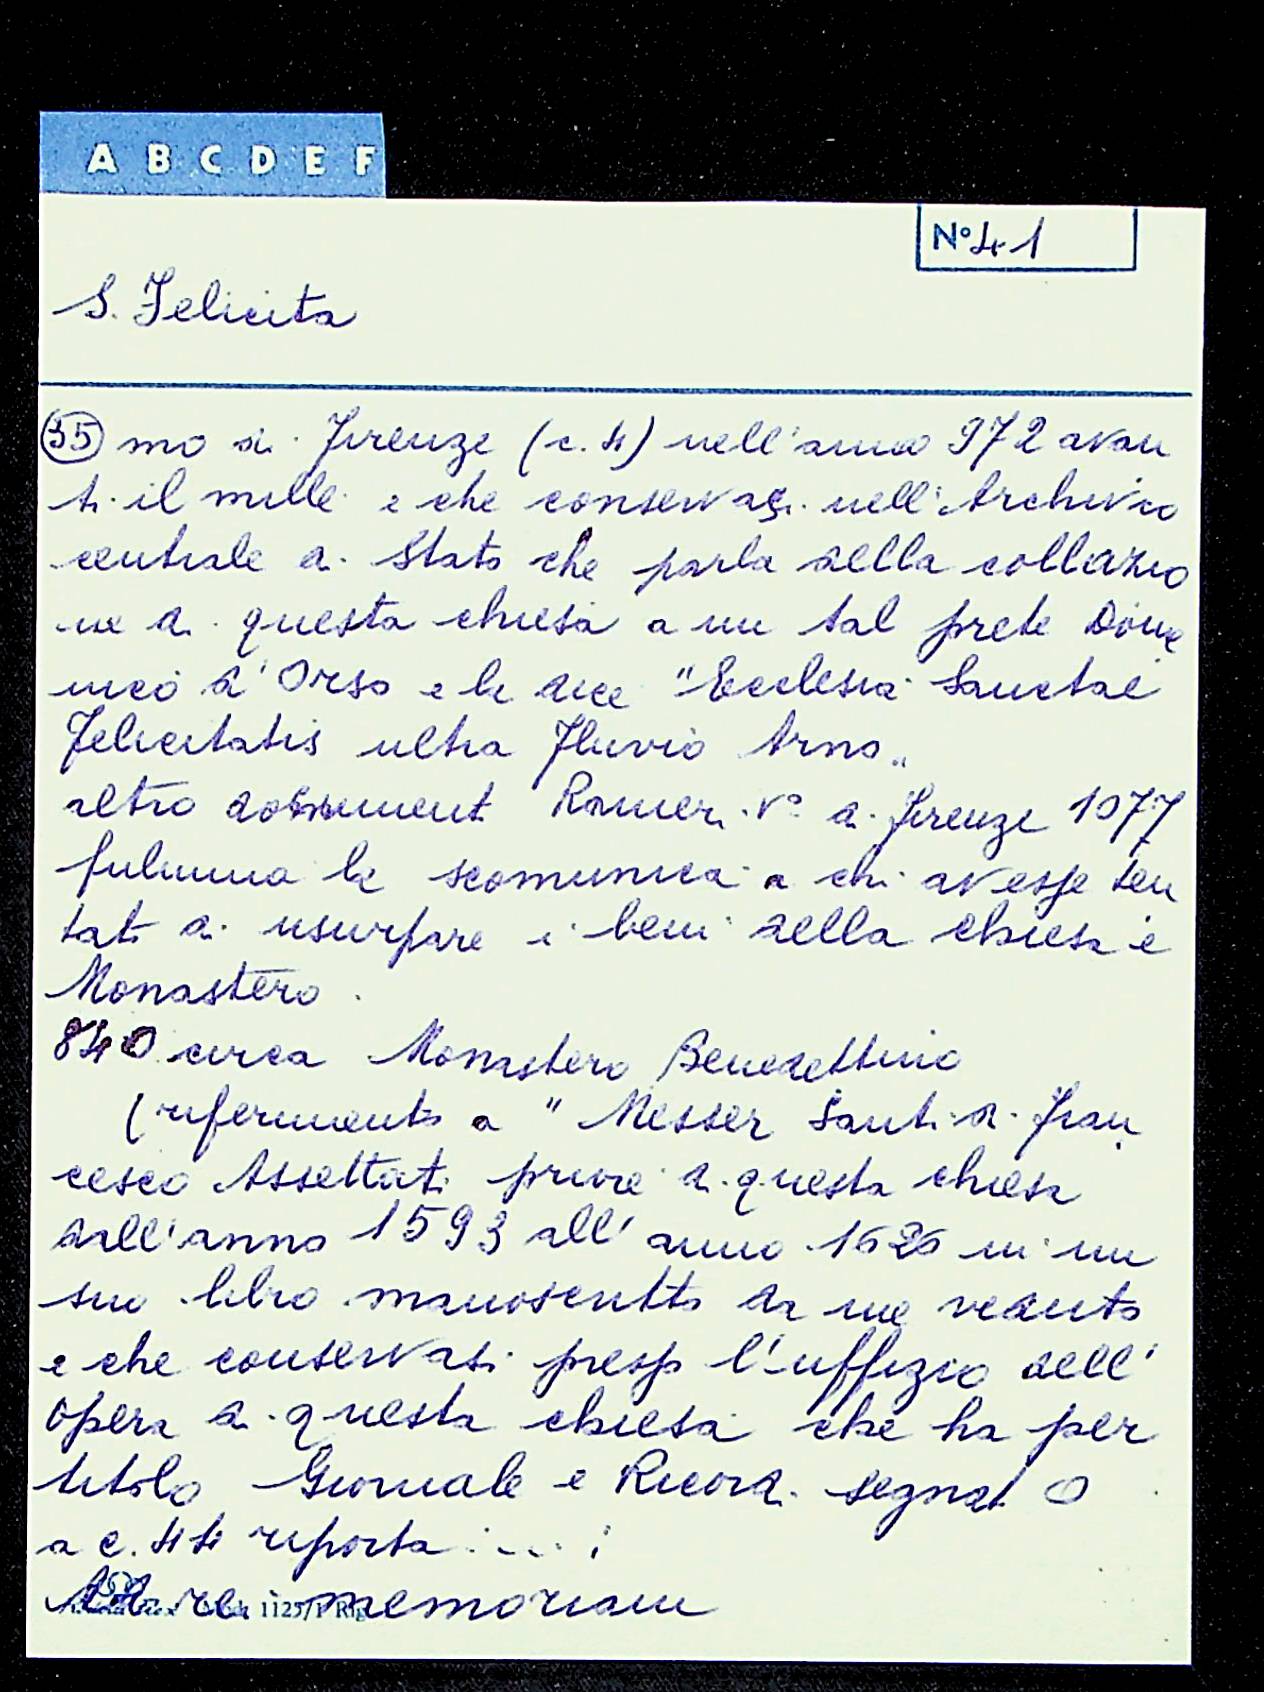 A B C D E F
N° 41
S. Felicita
35 mo di Firenze (c. 4) nell'anno 972 avan
ti il mille e che conservasi nell'Archivio
centrale di Stato che parla della collazio
ne di questa chiesa a un tal prete Dome
nico d'Orso e la dice "Ecclesia Sanctae
Felicitatis ultra Fluvio Arno"
altro document Ranieri V° di Firenze 1077
fulmina la scomunica a chi avesse ten
tati di usurpare i beni della chiesa e
Monastero.
840 circa Monastero Benedettino
(riferimento a "Messer Santi di Fran
cesco Assettati priore di questa chiesa
dall'anno 1593 all'anno 1626 in un
suo libro manoscritto da me veduto
e che conservasi presso l'uffizio dell'
opera di questa chiesa che ha per
titolo Giornale e Ricordi segnat O
a c. 44 riporta .....
rei memoriam
1125/1 Rig